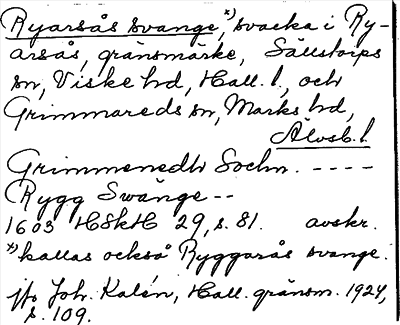 Ryarsås svange,*) svacka i Ry-
arsås, gränsmärke, Sällstorps
sn, Viske hd, Hall. l., och
Grimmareds sn, Marks hd,
Älvsb. l.
Grimmenedh Sochn. ----
Rygg Swänge --
1603 HSkH 29, s. 81. avskr.
*) kallas också Ryggarås svange.
jfr Joh. Kalén, Hall. gränsm. 1924,
s. 109.